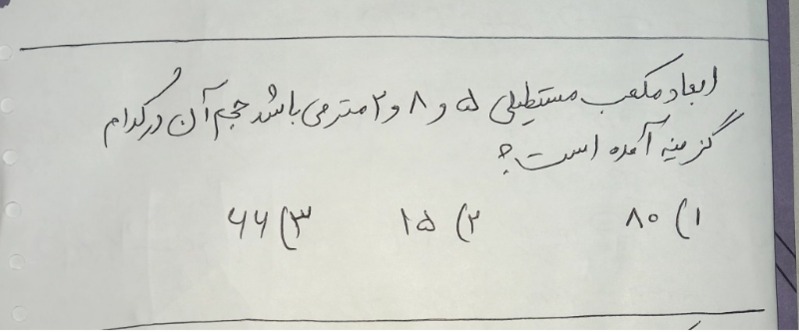 ابعاد مکعب مستطیلی ۵ و ۸ و ۲ متر می باشد حجم آن در کدام
گزینه آمده است؟
۱) ۸۰ ۲) ۱۵ ۳) ۶۶